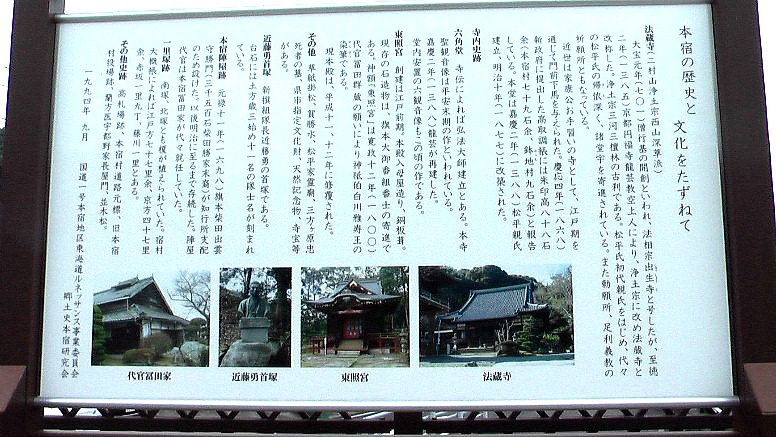 本宿の歴史と 文化をたずねて
法蔵寺(二村山浄土宗西山深草派)
大宝元年(七〇一)僧行基の開創といわれ、法相宗出生寺と号したが、至徳
二年(一三八五)京都円福寺龍芸教空上人により、浄土宗に改め法蔵寺と
改称した。浄土宗三河三檀林の古刹である。松平氏初代親氏をはじめ、代々
の松平氏の帰依深く、諸堂宇を寄進されている。また勅願所、足利義教の
祈願所ともなっている。
近世は家康公お手習いの寺として、江戸期を
通じて門前下馬を与えられた。慶応四年(一八六八)
新政府に提出した高取調帳には朱印高八十八石
余(本宿村七十九石余、鉢地村九石余)と報告
している。本堂は嘉慶二年(一三八八)松平親氏
建立、明治十年(一八七七)に改築された。
寺内史跡
六角堂 寺伝によれば弘法大師建立とある。本寺
聖観音像は平安末期の作といわれている。
嘉慶二年(一三八八)龍芸が再建した。
堂内安置の六観音像もこの頃の作である。
東照宮 創建は江戸前期。本殿入母屋造り、銅板葺。
現存の石造物は、旗本大御番組番士の寄進で
ある。神額「東照宮」は寛政十二年(一八〇〇)
代官冨田群蔵の願いにより神祇伯白川雅寿王の
染筆である。
現本殿は、平成十一、十二年に修復された。
その他 草紙掛松、賀勝水、松平家霊廟、三方ヶ原忠
死者の墓、県市指定文化財、天然記念物、寺宝等
がある。
近藤勇首塚 新撰組隊長近藤勇の首塚である。
台石には土方歳三始め十一名の隊士名が刻まれ
ている。
本宿陣屋跡 元禄十一年(一六九八)旗本柴田出雲
守勝門(三千五百石柴田勝家末裔)が知行所支配
のため設けた。以後明治に至るまで存続した。陣屋
代官は本宿冨田家が代々就任していた。
一里塚跡 南塚、北塚とも榎が植えられていた。宿村
大概帳によれば江戸方七十七里余、京方四十七里
余、赤坂一里九丁、藤川一里とある。
その他史跡 高札場跡、本宿村道路元標、旧本宿
村役場跡、蘭方医宇都野家長屋門、並木松。
一九九四年 九月 国道一号本宿地区東海道ルネッサンス事業委員会
郷土史本宿研究会
代官冨田家
近藤勇首塚
東照宮
法蔵寺